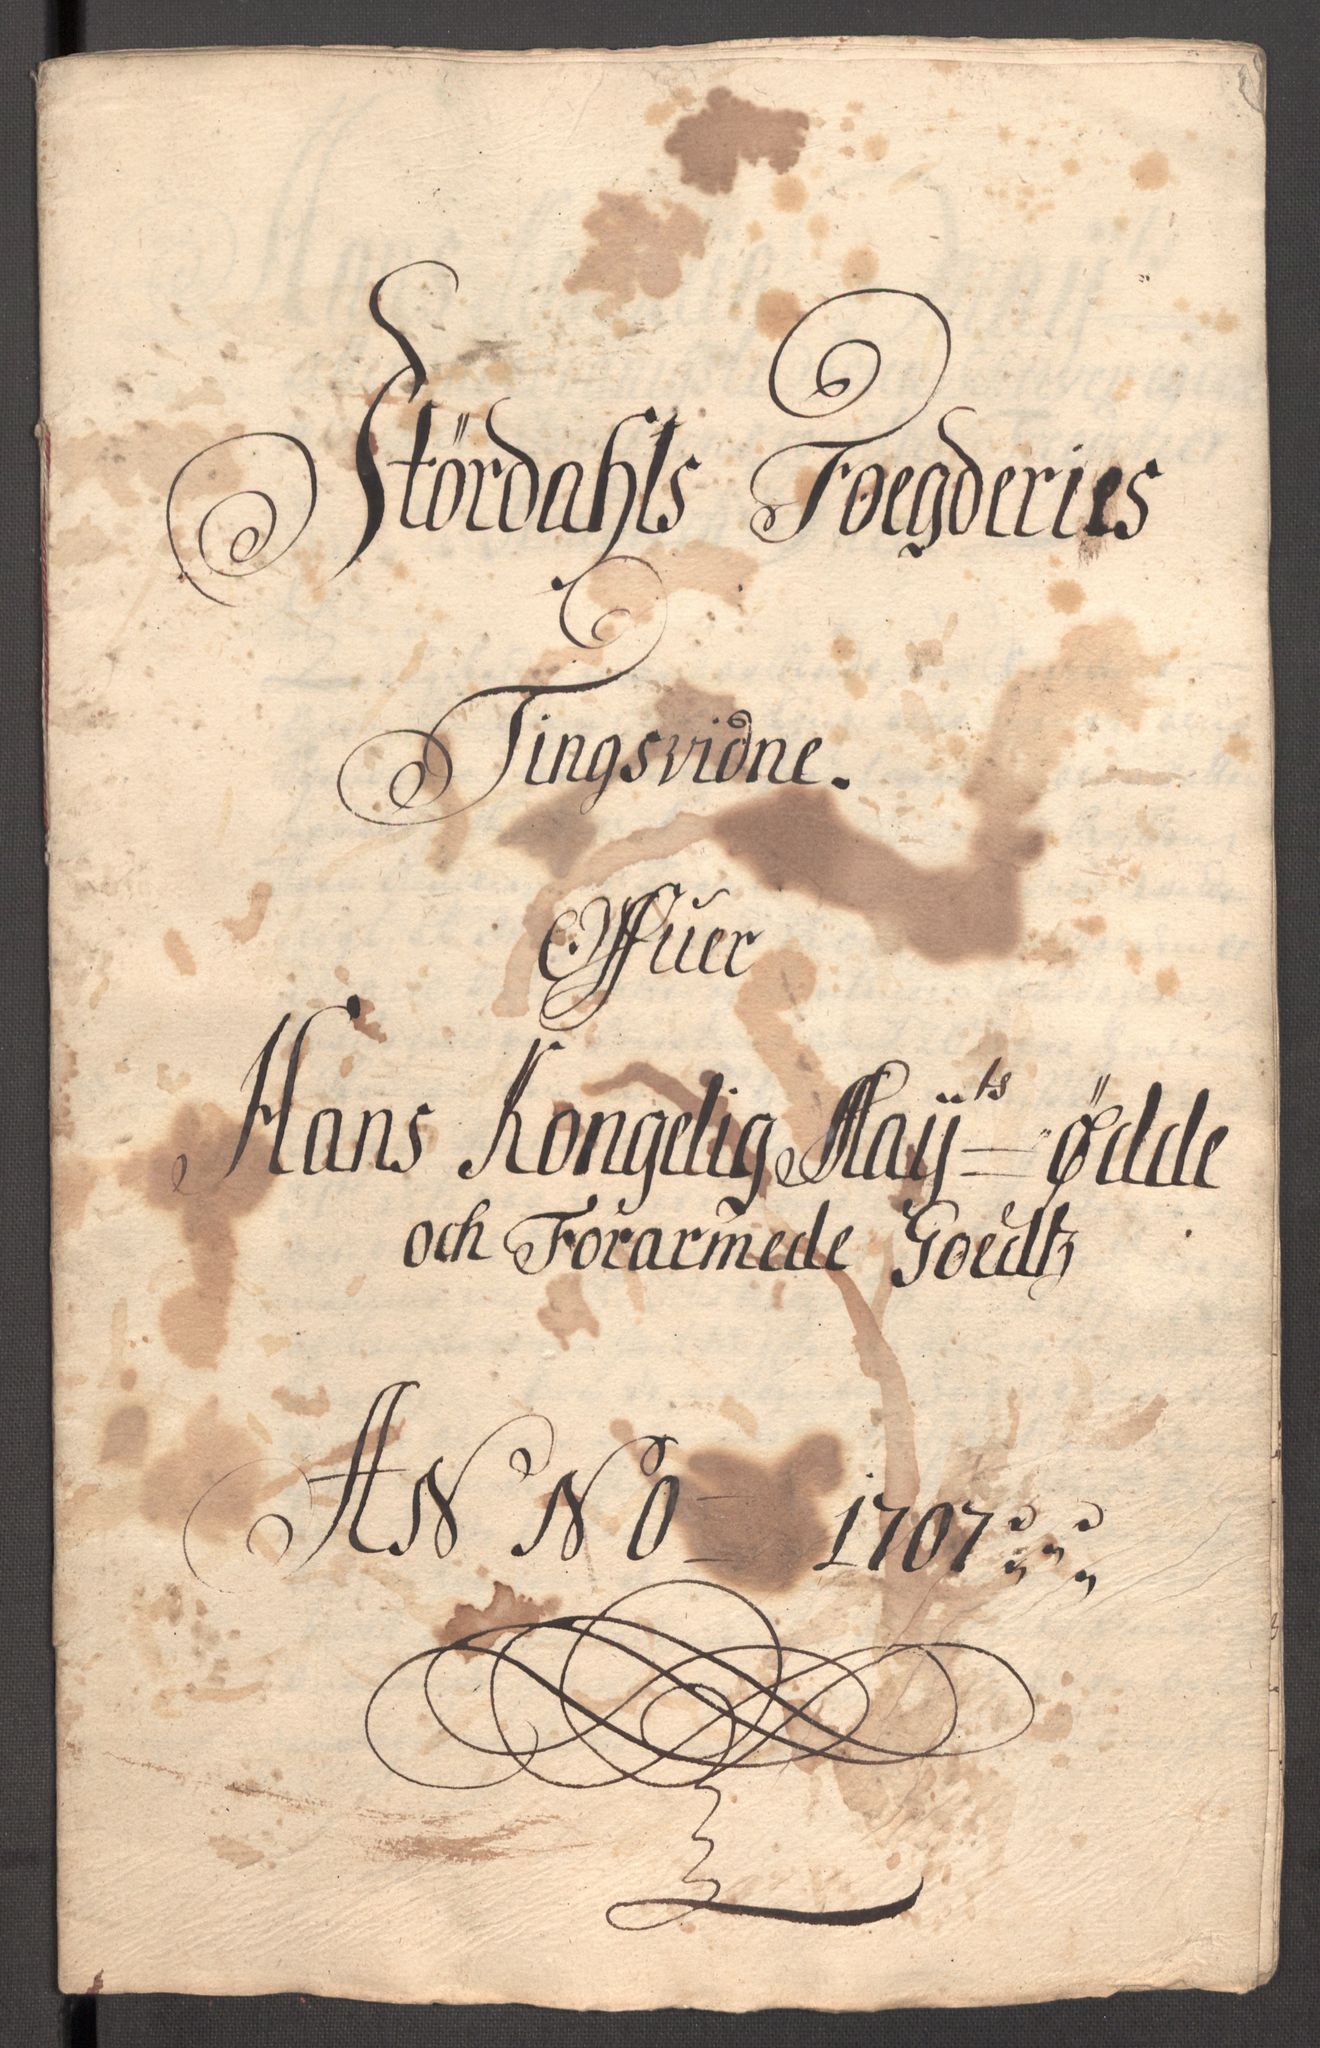 Stördahls Foegderies
Tingsvidne.
Offuer
Hans Kongelig Maÿts ödde
och Forarmede Goedtz
ANNO 1707